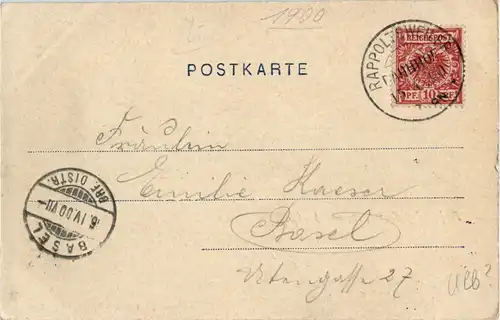 1900
RAPPOLTSWEILER
BAHNHOF
REICHSPOST
10 PF. 10 PF.
POSTKARTE
Fräulein
Emilie Haeser
Basel
Utengasse 27
BASEL
IV.00 VII
BRF. DISTR.